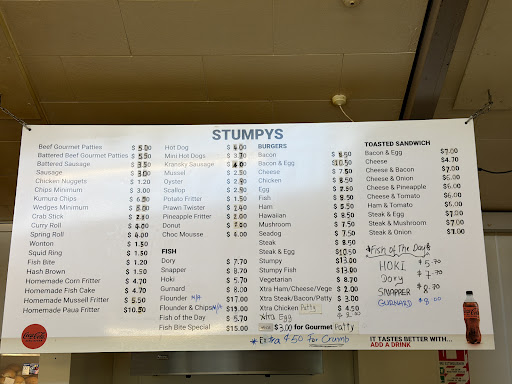 STUMPYS
Beef Gourmet Patties $ 5.00
Battered Beef Gourmet Patties $ 5.50
Battered Sausage $ 3.50
Sausage $ 3.00
Chicken Nuggets $ 1.20
Chips Minimum $ 3.00
Kumura Chips $ 6.50
Wedges Minimum $ 5.00
Crab Stick $
Curry Roll $ 4.00
Spring Roll $ 4.00
Wonton $ 1.50
Squid Ring $ 1.50
Fish Bite $ 1.20
Hash Brown $ 1.50
Homemade Corn Fritter $ 4.70
Homemade Fish Cake $ 4.70
Homemade Mussell Fritter $ 5.50
Homemade Paua Fritter $10.50
Hot Dog $ 4.00
Mini Hot Dogs $
Kransky Sausage $ 4.00
Mussel $
Oyster $
Scallop $
Potato Fritter $ 1.50
Prawn Twister $
Pineapple Fritter $ 2.00
Donut $
Choc Mousse $ 4.00
FISH
Dory $ 7.70
Snapper $ 8.70
Hoki $ 5.70
Gurnard $ 8.00
Flounder N/A $17.00
Flounder & Chips N/A $19.00
Fish of the Day $ 5.70
Fish Bite Special $15.00
BURGERS
Bacon $ 8.50
Bacon & Egg $10.50
Cheese $ 7.50
Chicken $ 8.50
Egg $ 7.50
Fish $ 8.50
Ham $ 8.50
Hawaiian $ 8.50
Mushroom $ 7.50
Seadog $ 7.50
Steak $ 8.50
Steak & Egg $10.50
Stumpy $13.00
Stumpy Fish $13.00
Vegetarian $ 8.70
Xtra Ham/Cheese/Vege $ 2.00
Xtra Steak/Bacon/Patty $ 3.00
Xtra Chicken Patty $ 4.50
Xtra Egg $ 2.00
$3.00 for Gourmet Patty
* Extra 4.50 For Crumb
TOASTED SANDWICH
Bacon & Egg $7.00
Cheese $4.70
Cheese & Bacon $7.00
Cheese & Onion $5.00
Cheese & Pineapple $6.00
Cheese & Tomato $6.00
Ham & Tomato $5.00
Steak & Egg $7.00
Steak & Mushroom $7.00
Steak & Onion $7.00
*Fish of The Day*
HOKI $5.70
Dory $7.70
SNAPPER $8.70
GURNARD $8.00
IT TASTES BETTER WITH...
ADD A DRINK